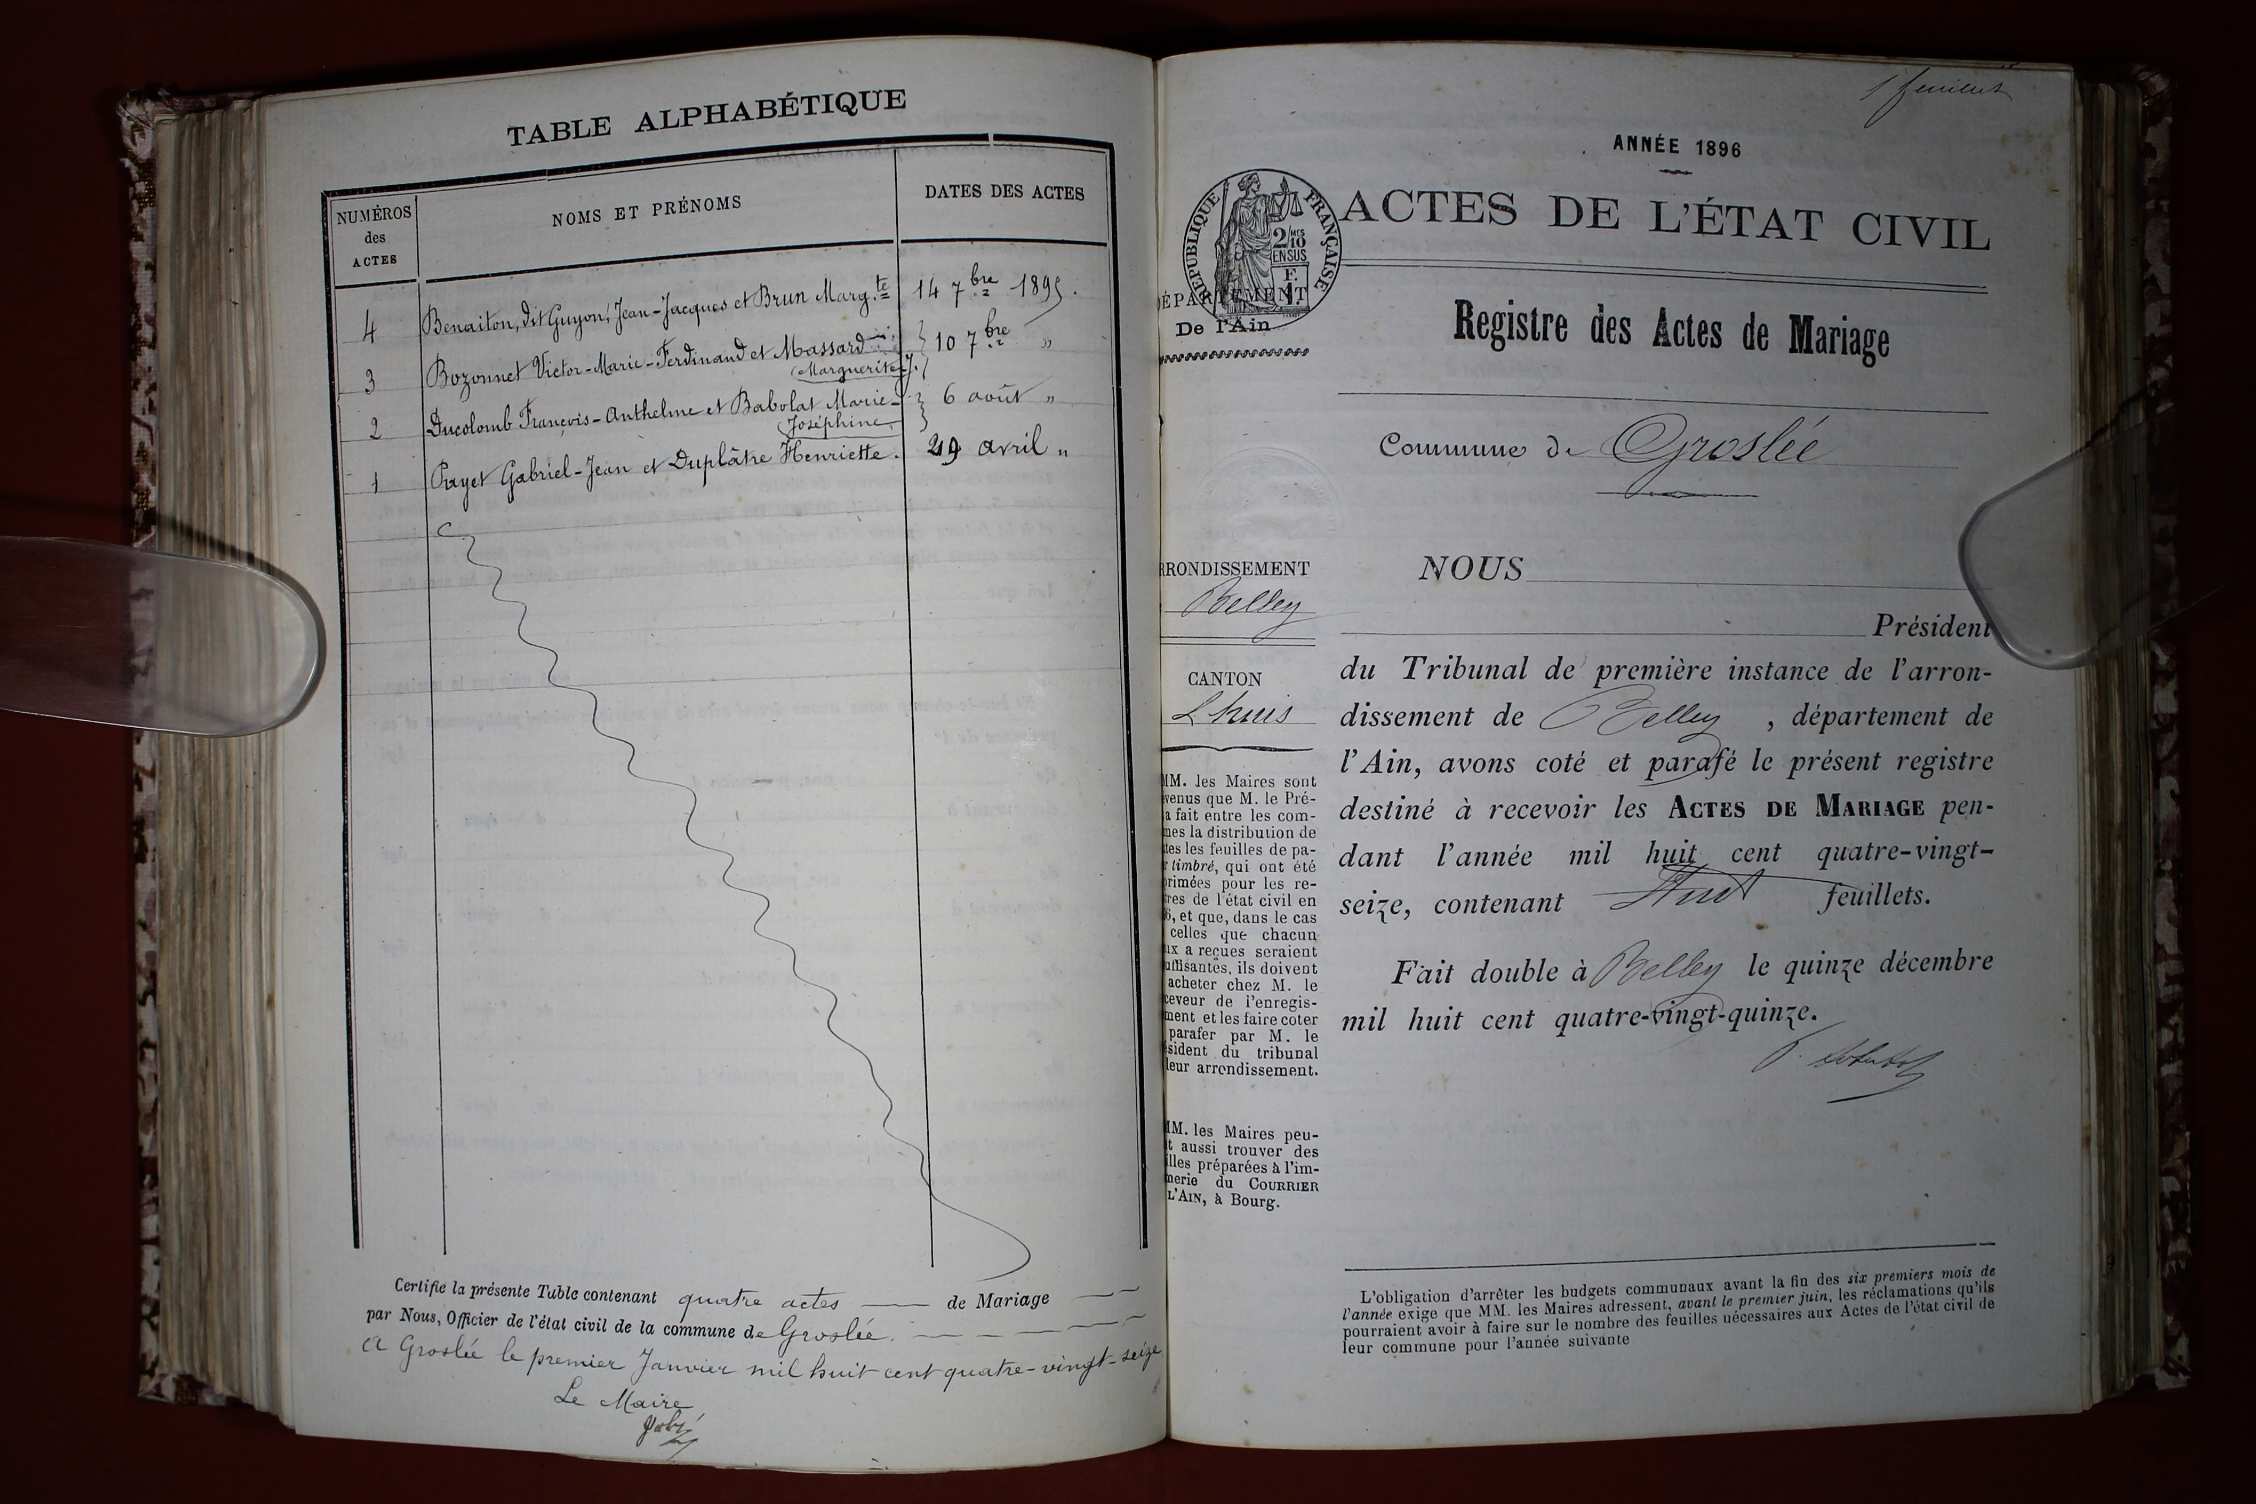 TABLE ALPHABÉTIQUE
NUMÉROS
des
ACTES
NOMS ET PRÉNOMS
DATES DES ACTES
4 Benaiton, dit Guyon, Jean-Jacques et Brun Marg.te 14 7bre 1895.
3 Bozonnet Victor-Marie-Ferdinand et Massard 10 7bre "
(Marguerite).
2 Ducolomb François-Anthelme et Babolat Marie- 6 août "
(Joséphine
1 Payet Gabriel-Jean et Duplâtre Henriette. 29 avril "
Certifie la présente Table contenant quatre actes de Mariage
par Nous, Officier de l'état civil de la commune de Groslée.
A Groslée le premier Janvier mil huit cent quatre-vingt-seize
Le Maire
ANNÉE 1896
RÉPUBLIQUE FRANÇAISE
2/10
MES
EN SUS
F.
1.
ACTES DE L'ÉTAT CIVIL
DÉPARTEMENT
De l'Ain
Registre des Actes de Mariage
Commune de Groslée
RRONDISSEMENT
Belley
CANTON
Lhuis
MM. les Maires sont
venus que M. le Pré-
a fait entre les com-
nes la distribution de
tes les feuilles de pa-
r timbré, qui ont été
primées pour les re-
tres de l'état civil en
6, et que, dans le cas
celles que chacun
ux a reçues seraient
uffisantes, ils doivent
acheter chez M. le
ceveur de l'enregis-
ment et les faire coter
parafer par M. le
ésident du tribunal
leur arrondissement.
MM. les Maires peu-
t aussi trouver des
illes préparées à l'im-
merie du COURRIER
L'AIN, à Bourg.
NOUS
Président
du Tribunal de première instance de l'arron-
dissement de Belley, département de
l'Ain, avons coté et parafé le présent registre
destiné à recevoir les ACTES DE MARIAGE pen-
dant l'année mil huit cent quatre-vingt-
seize, contenant feuillets.
Fait double à Belley le quinze décembre
mil huit cent quatre-vingt-quinze.
L'obligation d'arrêter les budgets communaux avant la fin des six premiers mois de
l'année exige que MM. les Maires adressent, avant le premier juin, les réclamations qu'ils
pourraient avoir à faire sur le nombre des feuilles nécessaires aux Actes de l'état civil de
leur commune pour l'année suivante